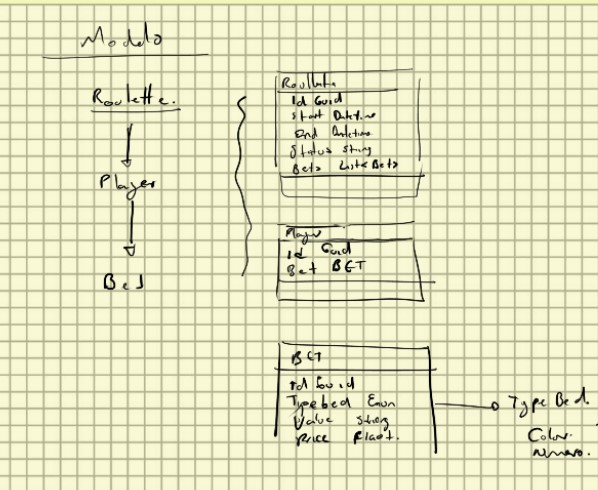 Modelo
Roulette.
Player
Bet
Roullette
Id Guid
Start Datetime
End Datetime
Status String
Bets List<Bets>
Player
Id Guid
Bet BET
BET
Id Guid
Typebed Enum
Value String
Price Float.
Type Bed.
Color.
Numero.